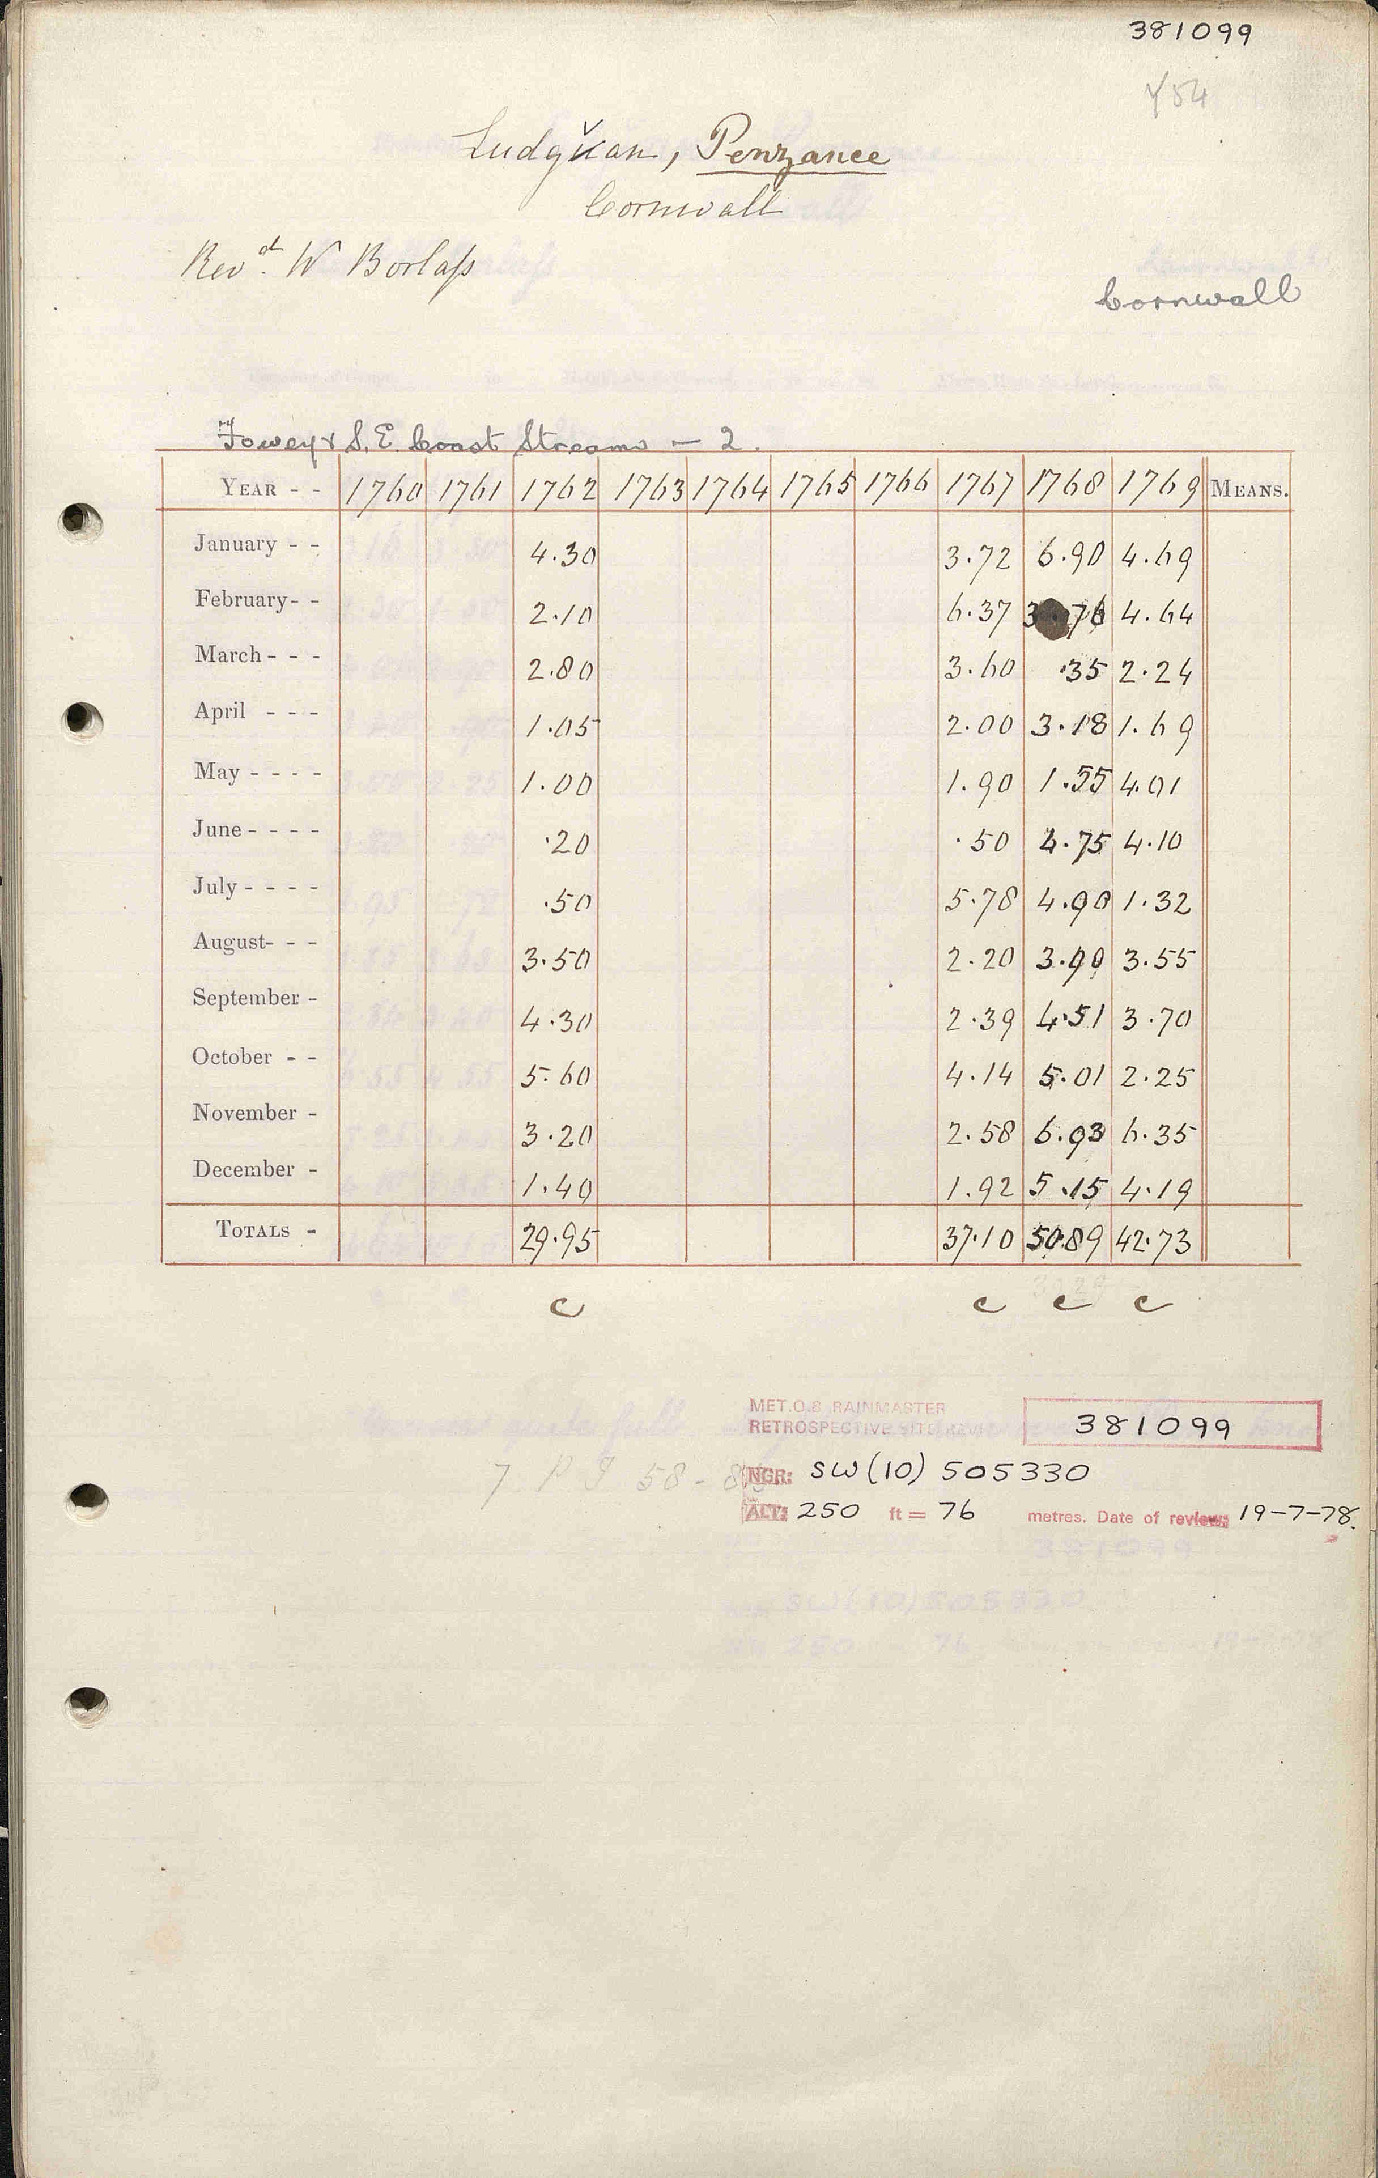 381099
Y54
Ludgvan, Penzance
Cornwall
Revd. W Borlaſs
Cornwall
Fowey & S.E. Coast Streams - 2.
YEAR - - 1760 1761 1762 1763 1764 1765 1766 1767 1768 1769 MEANS.
January - - 4.30 3.72 6.90 4.69
February - - 2.10 6.37 3.76 4.64
March - - - 2.80 3.60 .35 2.24
April - - - 1.05 2.00 3.18 1.69
May - - - - 1.00 1.90 1.55 4.01
June - - - - .20 .50 4.75 4.10
July - - - - .50 5.78 4.90 1.32
August - - - 3.50 2.20 3.90 3.55
September - 4.30 2.39 4.51 3.70
October - - 5.60 4.14 5.01 2.25
November - 3.20 2.58 6.93 6.35
December - 1.40 1.92 5.15 4.19
TOTALS - 29.95 37.10 50.89 42.73
c c c c
MET.O.8 RAINMASTER
RETROSPECTIVE SITE REVIEW 381099
7 P J 58 - 8
NGR: SW(10) 505330
ALT: 250 ft = 76 metres. Date of review: 19-7-78.